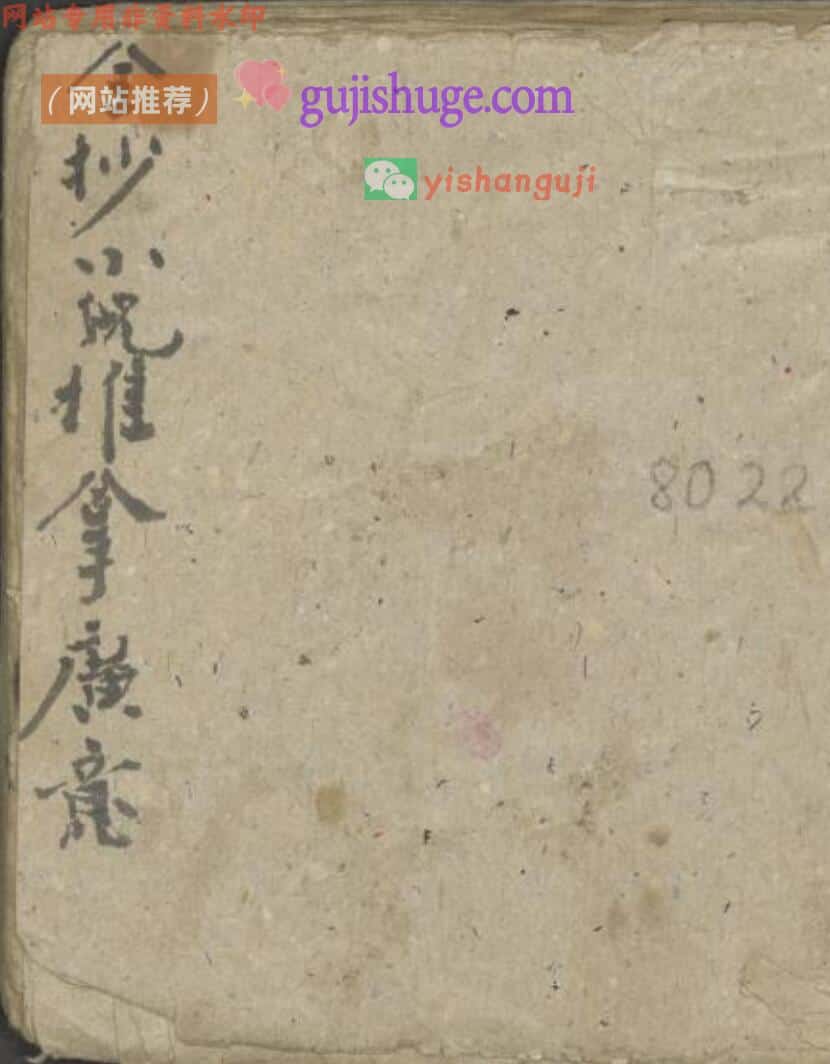 网站专用非资料水印
（网站推荐）
gujishuge.com
yishanguji
全抄小兒推拿廣意
8022